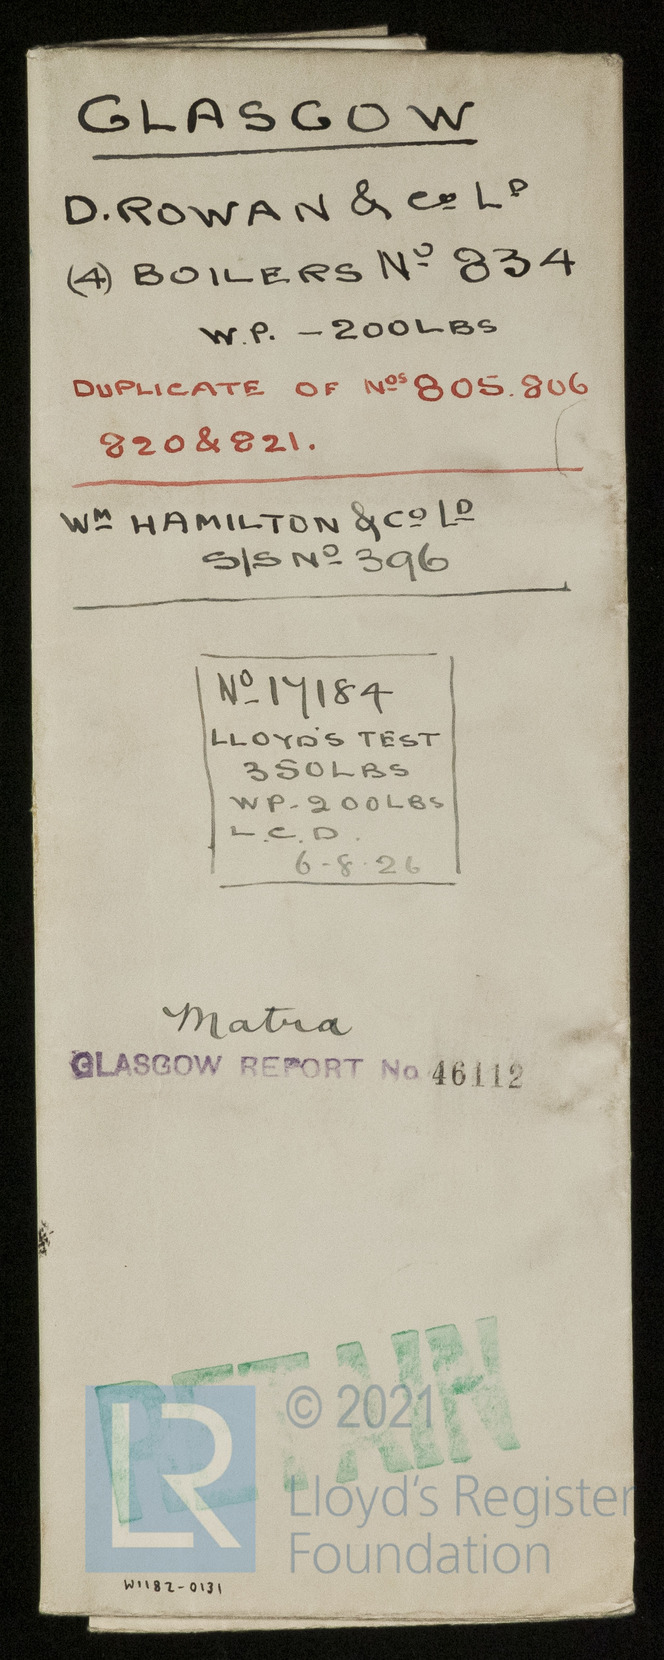 GLASGOW
D. ROWAN & Co LD
(4) BOILERS No 834
W.P. - 200LBS
DUPLICATE OF Nos 805. 806
820 & 821.
WM HAMILTON & Co LD
S/S No 396
No 17184
LLOYD'S TEST
350LBS
WP-200LBS
L.C.D.
6-8-26
Matra
GLASGOW REPORT No 46112
RETAIN
LR
© 2021
Lloyd's Register
Foundation
W1182-0131